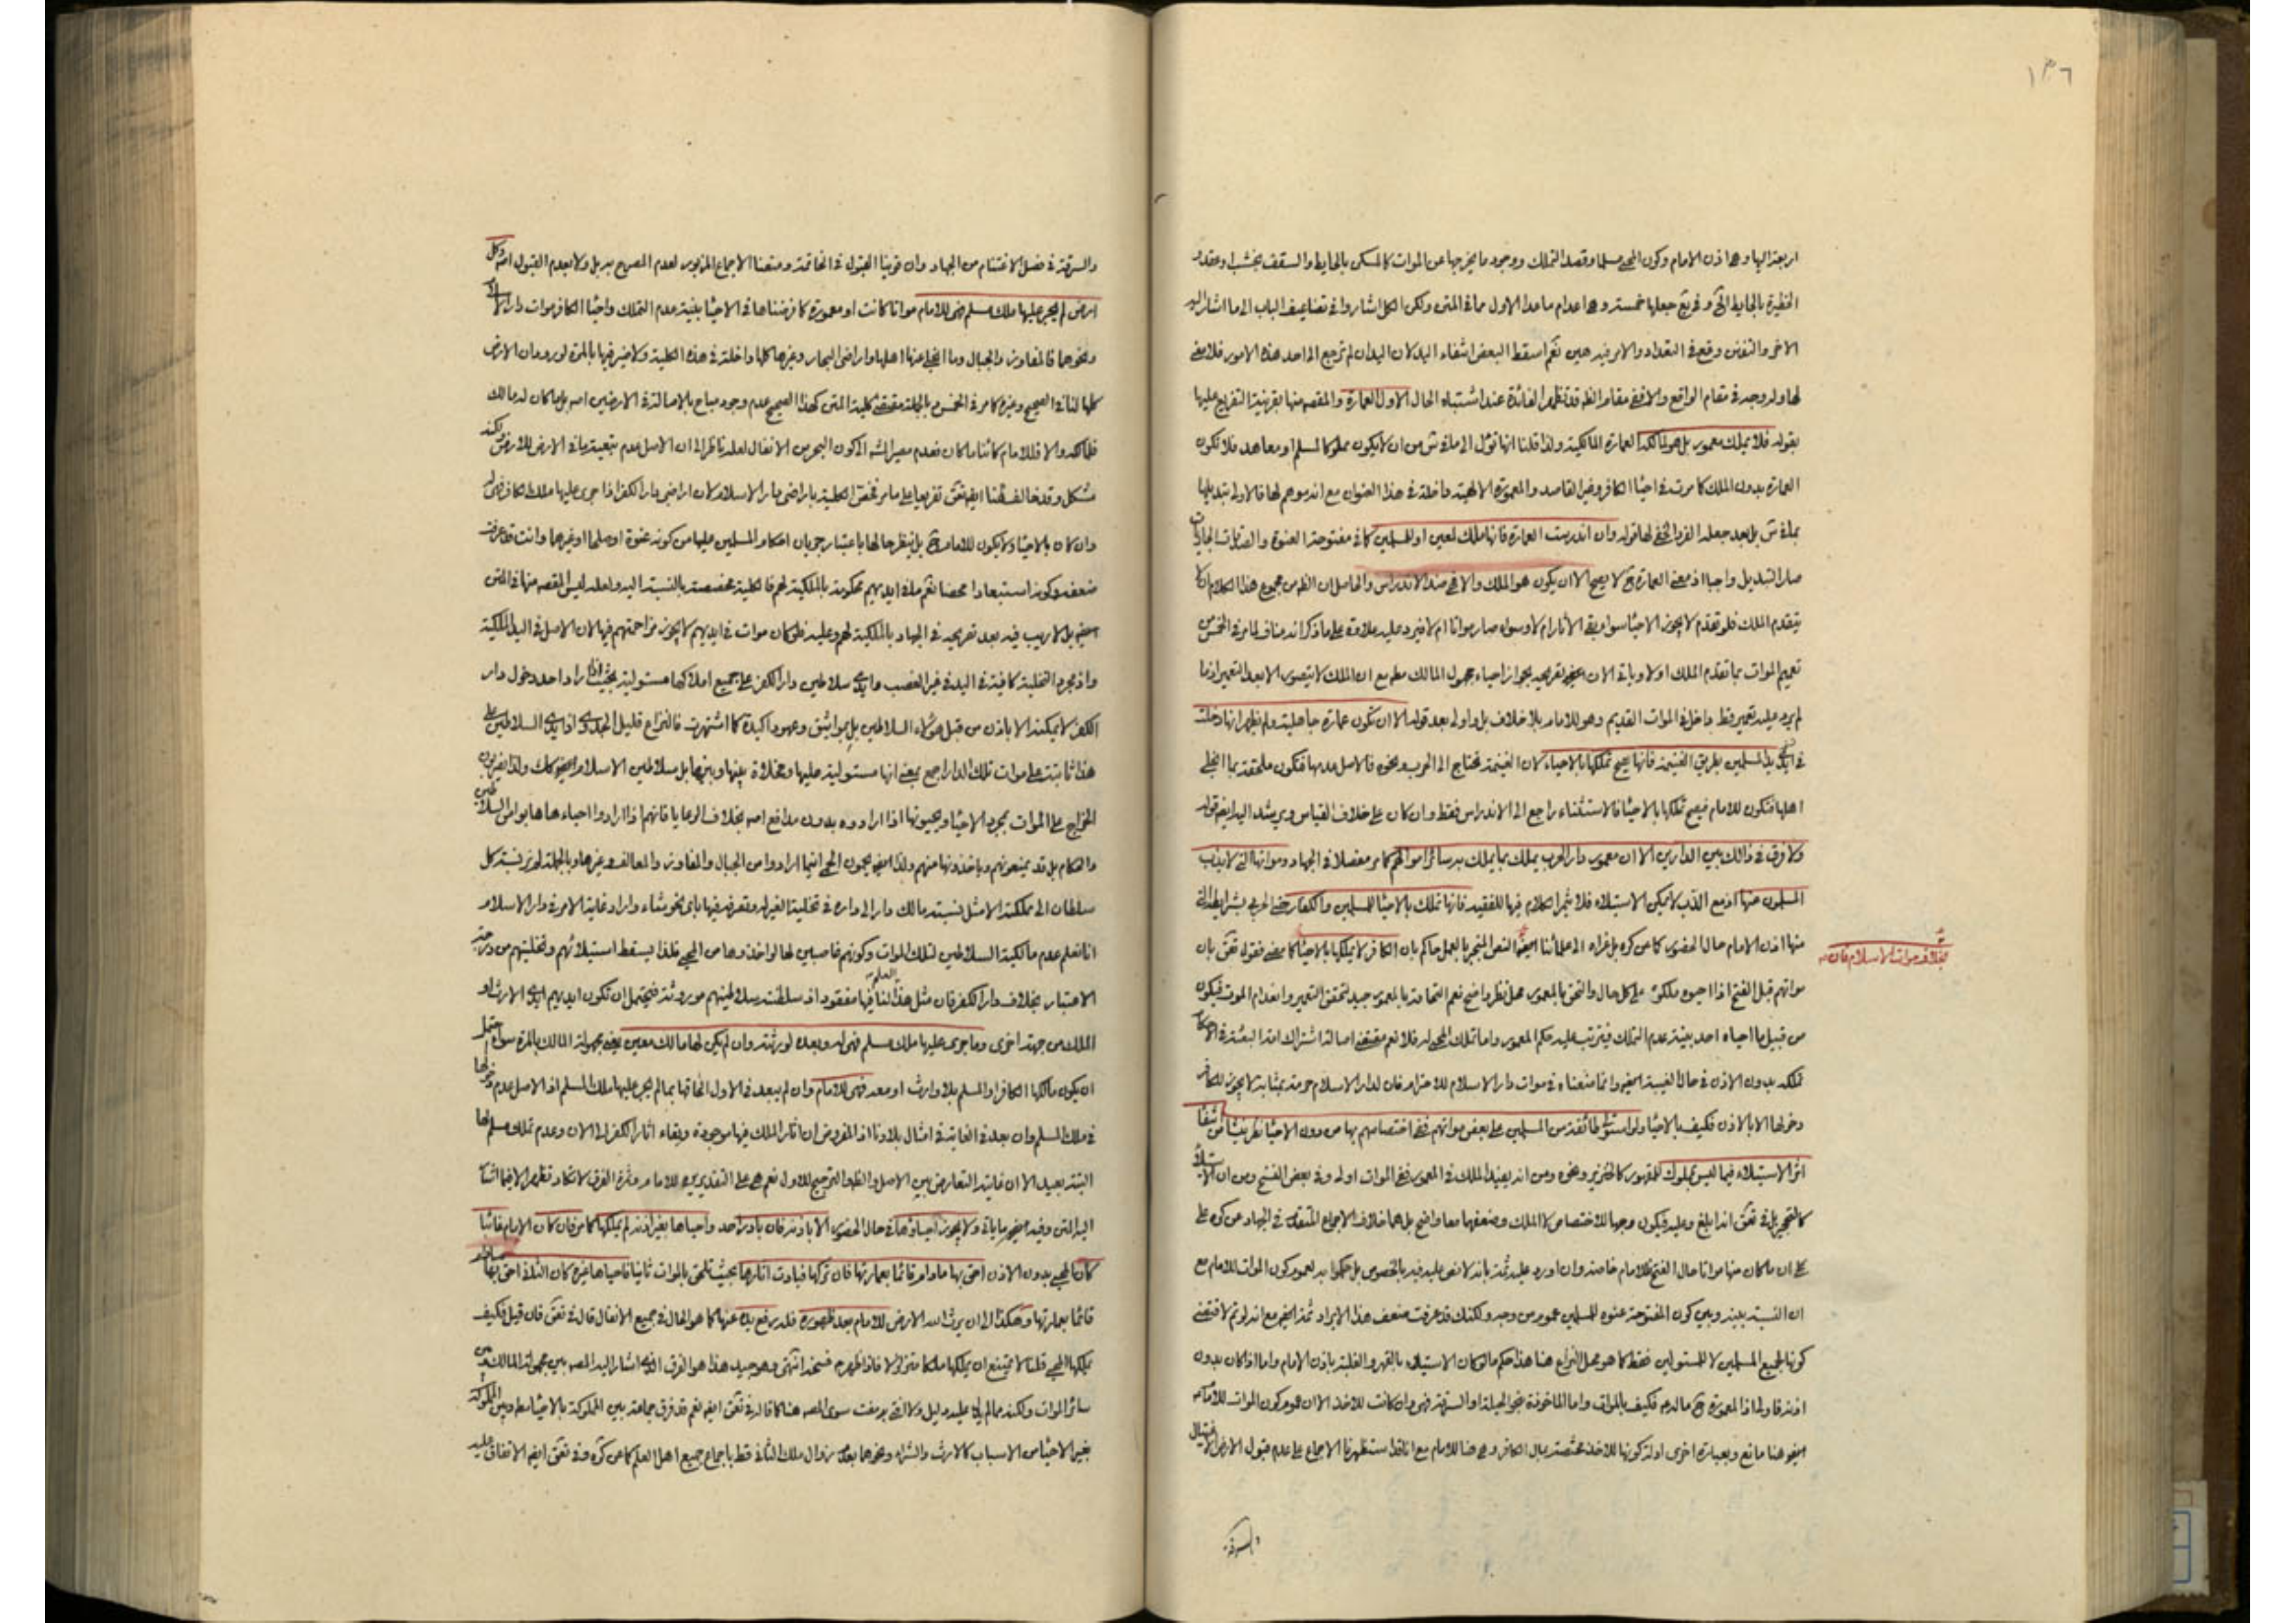 ١٣٦
اربعة اليها وها اذن الامام وكون المحيي مسلما وقصد التملك ووجود ما يخرجها عن الموات كالمسكن بالحايط والسقف بخشب وعقد و
الحظيرة بالحايط الخ وفي يع جعلها خمسة وها اعدام ماعدا الاول مما في المتن ولكن الكل اشاروا في تضاعيف الباب الى ما اشار اليه
الاخر والنقص وقع في التعداد والامر فيه هين نعم اسقط البعض انتفاء اليد لان اليد ان لم ترجع الى احد هذه الامور فلا معنى
لها ولو وجد في مقام الواقع والا ففي مقام الظ قد تظهر الفائدة عند اشتباه الحال الاول العمارة والمقصد منها بقرينة التفريع عليها
بقوله فلا يملك معمور بل هو لمالكه العمارة المالكية ولذا قلنا انها تؤل الى ما في ش من ان لا يكون مملوكا لمسلم او معاهد فلا تكون
العمارة بدون الملك كما مرت في احياء الكافر وغير القاصد والمعمورة الالهية داخلة في هذا العنوان مع انه موهم لها فالاولى تبديلها
بما في ش بل بعد جعله الفرد الخفي لها قوله وان اندرست العمارة فانها ملك لمعين او للمسلمين كما في مفتوحة العنوة
صار التبديل واجبا اذ معنى العمارة ح لا يصح الا ان يكون هو الملك والا في ضد الاندراس والحاصل ان الظ من مجموع هذا الكلام ان لا
يتقدم الملك فلو تقدم لا يجوز الاحياء سواء بقي الآثار ام لا وسواء صار مواتا ام لا فيرد عليه علاوة على ما ذكر انه مناف لما مر في الخمس من
تعميم الموات بما تقدم الملك اولا وياتي الان تصريحه بجواز احياء مجهول المالك مط مع ان الملك لا يتصور الا بعد التعمير اذ ما
لم يرد عليه تعمير قط داخل في الموات القديم وهو للامام بلا خلاف بل واولى بعد قوله الا ان تكون عمارة جاهلية ولم يظهر انها دخلت
في يد المسلمين بطريق الغنيمة فانها يصح تملكها بالاحياء لان الغنيمة تحتاج الى الحرب ونحوه فالاصل عدمها فتكون ملحقة بما انجلى
اهلها فتكون للامام فيصح تملكها بالاحياء فالاستثناء راجع الى الاندراس فقط وان كان على خلاف القياس ويرشد اليه ايض قوله
ولا فرق في ذلك بين الدارين الا ان معمور دار الحرب يملك بما يملك به سائر اموالهم كما مر مفصلا في الجهاد ومواتها التي لا يذب
المسلمون عنها اذ مع الذب لا يمكن الاستيلاء فلا يثمر الكلام فيها للفقيه فانها تملك بالاحياء للمسلمين والكفار حتى الحربي بشرايطه التي
منها اذن الامام حال الحضور كما عن كره بل عزاه الى علمائنا النص المنجبر بالعمل حاكم بان الكافر لا يملكها بالاحياء كما مضى فقول تحق بان
بخلاف موات الاسلام فان
مواتهم قبل الفتح اذا احيوه ملكوه على كل حال والتحق بالمعمور محل نظر واضح نعم التحاقه بالمعمور جيد لتحقق التعمير وانعدام الموت فيكون
من قبيل ما احياه احد بنية عدم التملك فيترتب عليه حكم المعمور واما تملك المحيي له فلا نعم مقتضى اصالة اشتراك
تملكه بدون الاذن في حال الغيبة ايض وانما منعناه في موات دار الاسلام للاحترام فان لدار الاسلام حرمة بمثابة لا يجوز للكافر
دخولها الا بالاذن فكيف بالاحياء ولو استولى طائفة من المسلمين على بعض مواتهم ففي اختصاصهم بها من دون الاحياء نظر ينشا من انتفاء
اثر الاستيلاء فيما ليس بمملوك للمقهور كالخنزير ونحوه ومن انه يفيد الملك في المعمور ففي الموات اولى وفي بعض النسخ ومن ان الاستيلاء
كالتحجير بل في تحق انه ابلغ وعليه فيكون وجها للاختصاص لا الملك وضعفهما معا واضح بل هما خلاف الاجماع المنعقد في الجهاد عن كره على
على ان ما كان منها مواتا حال الفتح فللامام خاصة وان اورد عليه ثمة بانه لا نص عليه فيه بالخصوص بل حكموا به لعموم كون الموات للامام مع
ان النسبة بينه وبين كون المفتوحة عنوة للمسلمين عموم من وجه ولكنك قد عرفت ضعف هذا الايراد ثمة ايض مع انه لو تم لاقتضى
كونها لجميع المسلمين لا للمستولين فقط كما هو محل النزاع هنا هذا حكم ما لو كان الاستيلاء بالقهر والغلبة باذن الامام واما اذا كان بدون
اذنه فاولى اذ المعمورة ح ماله فكيف بالموات واما الماخوذة بنحو الحيلة او السرقة فهي وان كانت للاخذ الا ان عموم كون الموات للامام
ايض هنا مانع وبعبارة اخرى ادلة كونها للاخذ مختصة بمال الكافر وهي هنا للامام مع انا قد استظهرنا الاجماع على عدم قبول الارض
والسرقة
والسرقة في فصل الاغتنام من الجهاد وان قوينا القبول في الخاتمة ومنعنا الاجماع المزبور لعدم المصرح به بل ولا بعدم القبول اصلا وكل
ارض لم يجر عليها ملك مسلم فهي للامام مواتا كانت او معمورة كما فرضناها في الاحياء بنية عدم التملك واحياء الكافر موات دار الا
ونحوهما فالمفاوز والجبال وما انجلى عنها اهلها واراضي البحار وغيرها كلها داخلة في هذه الكلية ولا ضير فيها بالمرة لورود ان الارض
كلها لنا في الصحيح وغيره كما مر في الخمس وبالجملة مقتضى كلية المتن كهذا الصحيح عدم وجود مباح بالاصالة في الارضين اصلا بل ما كان له مالك
فلمالكه والا فللامام كائنا ما كان فعدم مصير الى كون البحر من الانفال لعله ناظر الى ان الاصل عدم تبعية ما في الارض للارض لكنه
مشكل وقد خالف شيخنا ايض تحق تفريعا على ما مر فخص الكلية باراضي دار الاسلام لان اراضي دار الكفر اذا جرى عليها ملك الكافر فهي له
وان كان بالاحياء ولا يكون للامام ح بل ينظر حالها باعتبار جريان احكام المسلمين عليها من كونه عنوة او صلحا او غيرهما وانت قد عرفت
ضعفه وكونه استبعادا محضا نعم ما في ايديهم محكومة بالملكية لهم فالكلية مخصصة بالنسبة اليه ولعله ليس المقصد منها في المتن
ايض بل لا ريب فيه بعد تصريحه في الجهاد بالملكية لهم وعليه فلو كان موات في ايديهم لا يجوز مزاحمتهم فيها لان الاصل في اليد الملكية
واذ مجرد التخلية كافية في اليد في غير الغصب وايدي سلاطين دار الكفر على جميع املاكها مستولية بحيث اذا اراد احد دخول دار
الكفر لا يمكنه الا باذن من قبل هؤلاء السلاطين بل بمواثيق وعهود اكيدة كما اشتهرت فالنزاع قليل الجدوى اذ ايدي السلاطين على
هذا ثابتة على موات تلك الدار اجمع بمعنى انها مستولية عليها ومخلاة بينها وبينها بل سلاطين الاسلام ايض كك ولذا يضربون
الخراج على الموات بمجرد الاحياء ويحيونها اذا ارادوه بدون مدافع اصلا بخلاف الرعايا فانهم اذا ارادوا احياء هابوا من السلاطين
والحكام بل قد يمنعونهم وياخذونها منهم ولذا ايض يحمون الحمى انما ارادوا من الجبال والمفاوز والمعالف وغيرها وبالجملة لم نر نسبة كل
سلطان الى مملكته الا مثل نسبة مالك دار الى داره في تخليتها لغيره وتصرفه فيها باي نحو شاء واراد غاية الامر في دار الاسلام
انا نعلم عدم مالكية السلاطين لتلك الموات وكونهم غاصبين لها لو اخذوها من المحيي فلذا يسقط استيلائهم وتخليتهم من درجة
الاعتبار بخلاف دار الكفر فان مثل هذا العلم لنا فيها مفقود اذ سلطنة سلاطينهم موروثة فيحتمل ان تكون ايديهم ايدي الارث او
الملك من جهة اخرى وما جرى عليها ملك مسلم فهي له وبعده لورثته وان لم يكن لها مالك معين يعني بجهولة المالك بالمرة سواء احتمل
ان يكون مالكها الكافر او المسلم بلا وارث او معه فهي للامام وان لم يبعد في الاول الحاقها بما لم يجر عليها ملك المسلم اذ الاصل عدم دخولها
في ملك المسلم وان بعد في الغاية في امثال بلادنا اذ المفروض ان اثار الملك فيها موجودة وبقاء اثار الكفر الى الان وعدم تملك مسلم لها
البتة بعيد الا ان غايته التعارض بين الاصل والظ والترجيح للاول نعم هي على التقديرين للامام وثمرة الفرق لا تكاد تظهر الا فيما اشار
اليه المتن وفيه ايض ما ياتي ولا يجوز احياؤها في حال الحضور الا باذنه فان بادر احد واحياها بغير اذنه لم يملكها كما مر فان كان الامام غائبا
كان المحيي بدون الاذن احق بها ما دام قائما بعمارتها فان تركها فبادت اثارها بحيث تلحق بالموات ثانيا فاحياها غيره كان الثاني احق بها مادام
قائما بعمارتها وهكذا الى ان يرث الله الارض للامام بعد ظهوره فله رفع يده عنها كما هو الحال في جميع الانفال قال في تحق فان قيل فكيف
يملكها المحيي قلنا لا يمتنع ان يملكها ملكا متزلزلا فاذا ظهر ع فسخه انتهى وهو جيد هذا هو الفرق الذي اشار اليه المصه بين مجهولة المالك وبين
سائر الموات ولكنه مما لم نر عليه دليل ولا افتى به مفت سوى المصه هنا كما قال في تحق ايض نعم قد فرق جماعة بين المملوكة بالاحياء مط وبين المملوكة
بغير الاحياء من الاسباب كالارث والشراء ونحوهما بعدم زوال ملك الثاني قط باجماع جميع اهل العلم كما عن كره وفي تحق ايض الاتفاق عليه